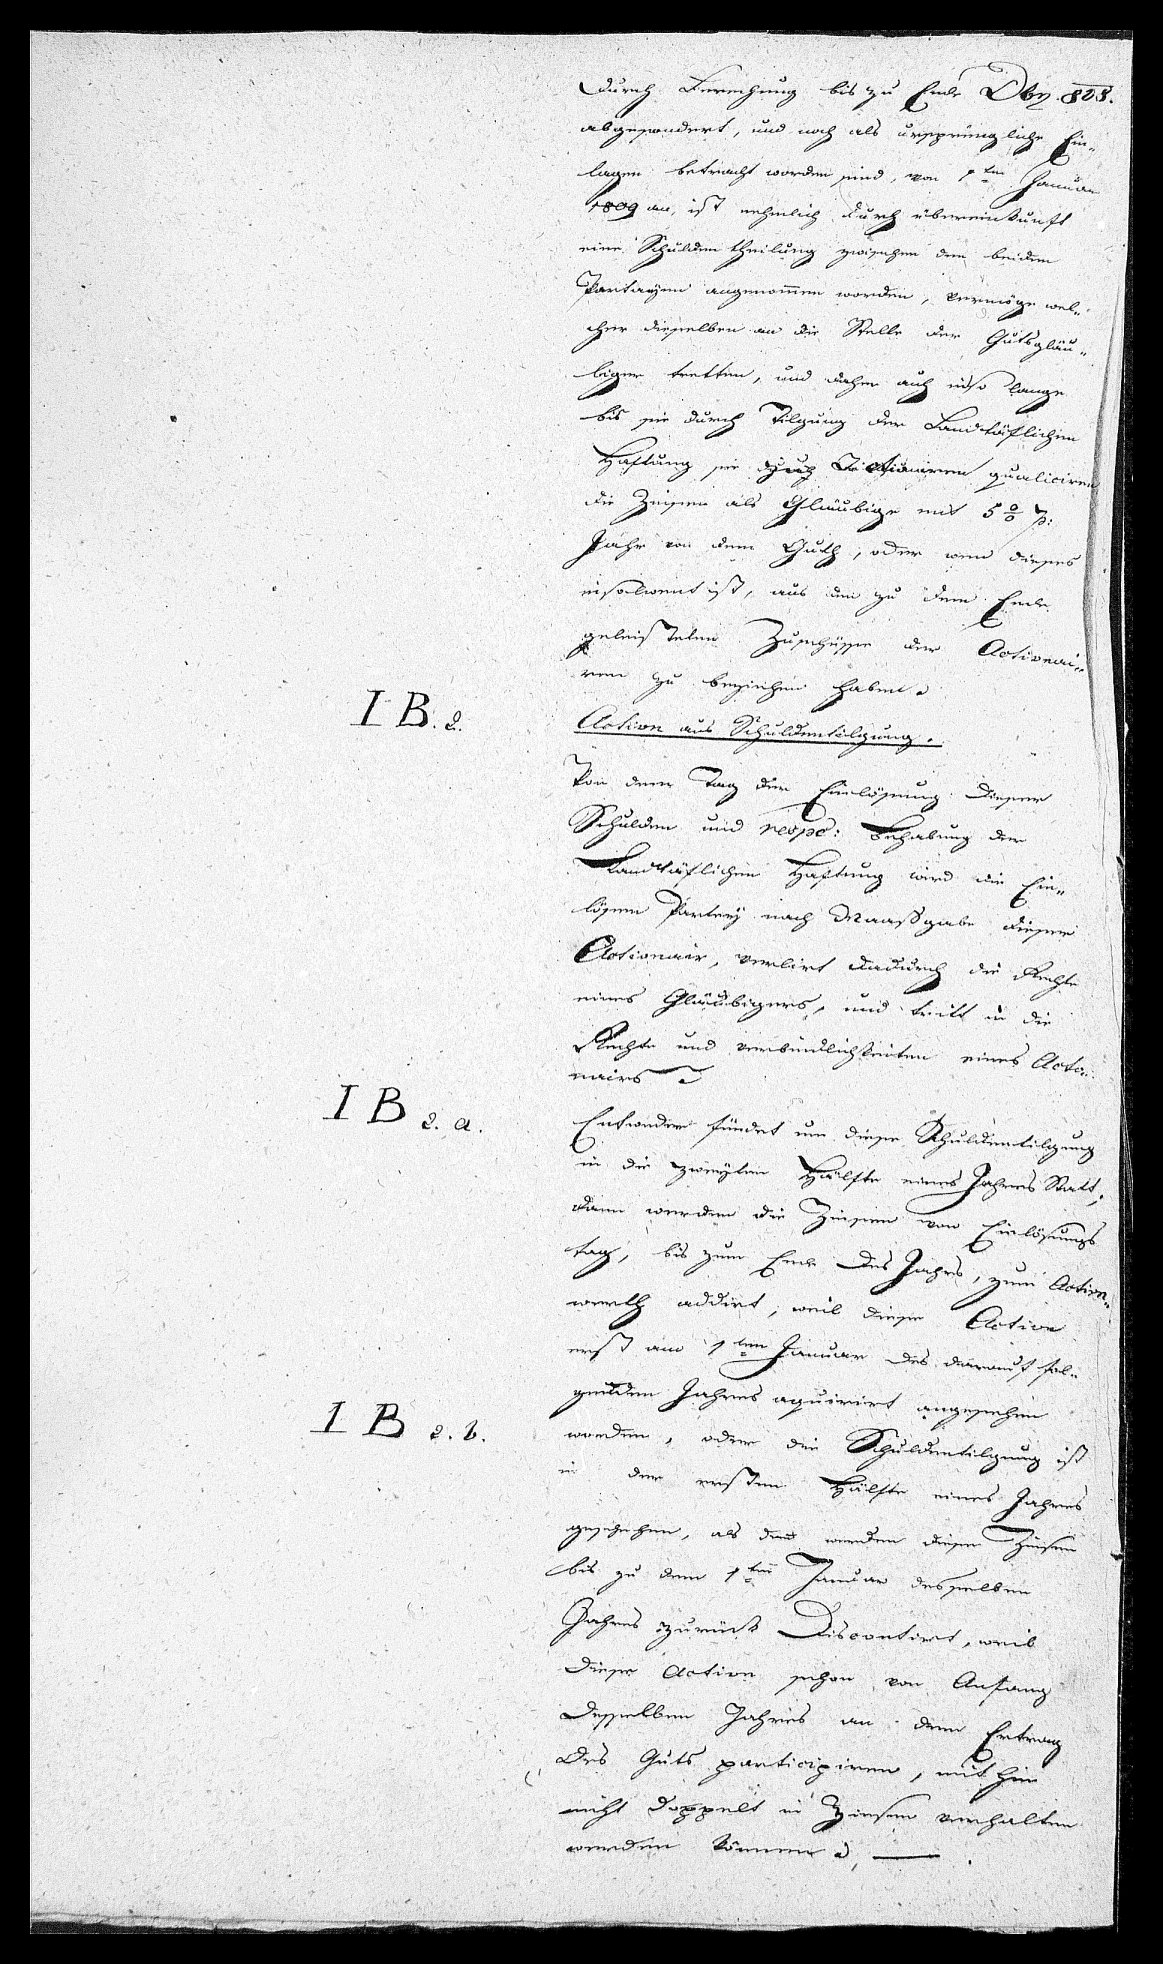 durch Berechnung bis zu Ende Dbr. 808.
abgesondert, und noch als ursprüngliche Ein-
lagen betracht worden sind, von 1ten Januar
1809 an, ist nehmlich durch übereinkunft
eine Schulden theilung zwischen den beiden
Partayen angenommen worden, vermöge wel-
cher dieselben an die Stelle der Gutsgläu-
biger tretten, und daher auch inso lange
bis sie durch Tilgung der Landtäflichen
Haftung sie zu Actionairen qualiciren
die Zinsen als Gläubige mit 5 % p:
Jahr von dem Guth, oder wenn dieses
insolvent ist, aus den zu dem Ende
geleisteten Zuschüssen der Actionai-
ren zu beziehen haben.
I B. 2.
Action aus Schuldentilgung.
Von dem Tag der Einlösung dieser
Schulden und respe: Behabung der
Landtäflichen Haftung wird die Ein-
lösen Partey nach Maassgabe dieser
Actionair, verlirt dadurch die Rechte
eines Gläubigers, und tritt in die
Rechte und verbindlichkeiten eines Actio-
nairs
I B 2. a.
Entweder findet nun diese Schuldentilgung
in die zweyten Hälfte eines Jahres Statt,
dann werden die Zinsen von Einlösungs
tag, bis zum Ende des Jahrs, zum Action-
werth addirt, weil diese Action
erst am 1ten Januar des darauf fol-
genden Jahres aquirirt angesehen
I B 2. b.
werden, oder die Schuldentilgung ist
in der ersten Hälfte eines Jahres
geschehen, als dann werden diese Zinsen
bis zu dem 1ten Januar desselben
Jahres zurück Discontirt, weil
diese Action schon von Anfang
desselben Jahres an dem Ertrag
des Guts participiren, mithin
nicht doppelt in Zinsen verhalten
werden können.